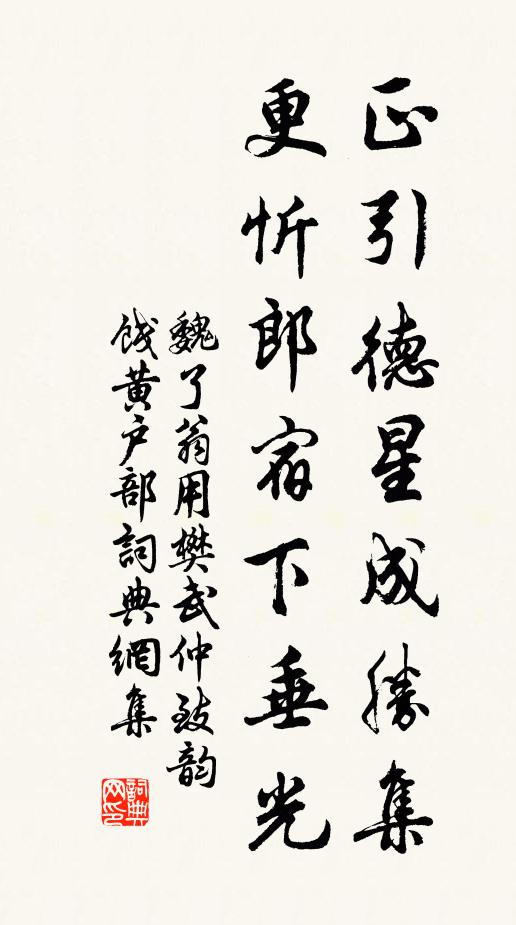 正引德星成勝集
更忻郎宿下垂光
魏了翁用樊武仲致韵
餞黃戶部詞典網集
詞典网印